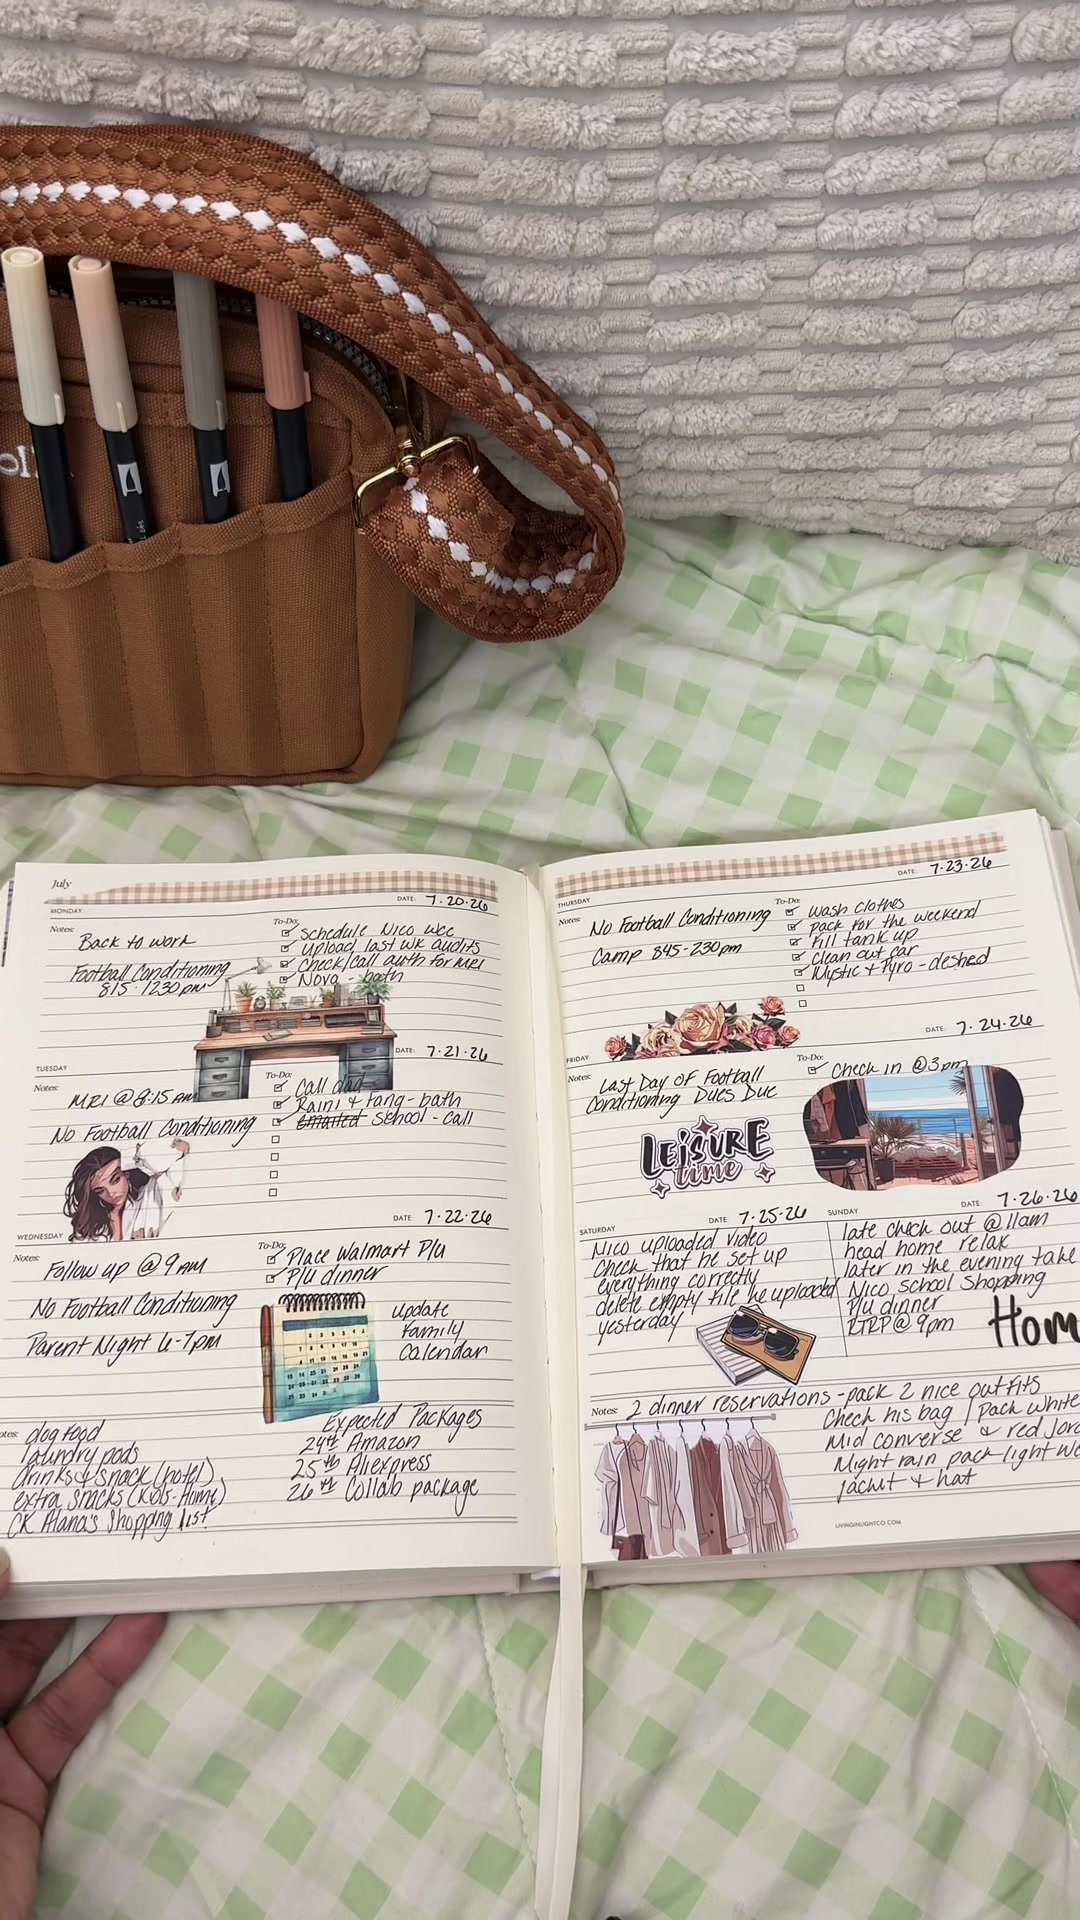 July
MONDAY
DATE: 7.20.26
Notes:
Back to work
Football Conditioning
815-1230pm
To-Do:
Schedule Nico wcc
upload last wk audits
Check/call auth for MRI
Nova - bath
TUESDAY
DATE: 7.21.26
Notes:
MRI @ 8:15 AM
No Football Conditioning
To-Do:
Call dad
Raini & Fang - bath
emailed school - call
WEDNESDAY
DATE: 7.22.26
Notes:
Follow up @ 9AM
No Football Conditioning
Parent Night 6-7pm
To-Do:
Place Walmart P/u
P/u dinner
update
Family
Calendar
Notes:
dog food
laundry pods
drinks & snack (hotel)
extra snacks (kids-Home)
CK Alana's Shopping list
Expected Packages
24th Amazon
25th Aliexpress
26th Collab package
THURSDAY
DATE: 7.23.26
Notes:
No Football Conditioning
Camp 845-230pm
To-Do:
wash clothes
pack for the weekend
Fill tank up
clean out car
Mystic & Pyro - deshed
FRIDAY
DATE: 7.24.26
Notes:
Last Day of Football
Conditioning Dues Due
To-Do:
Check in @ 3pm
LEISURE
time
SATURDAY
DATE: 7.25.26
Nico uploaded video
Check that he set up
everything correctly
delete empty file he uploaded
yesterday
SUNDAY
DATE: 7.26.26
late check out @ 11am
head home relax
later in the evening take
Nico School Shopping
P/u dinner
RTRP @ 9pm
Hom
Notes:
2 dinner reservations - pack 2 nice outfits
Check his bag / Pack white
Mid converse & red Jord
Might rain pack light we
jacket & hat
LIVINGINLIGHTCO.COM